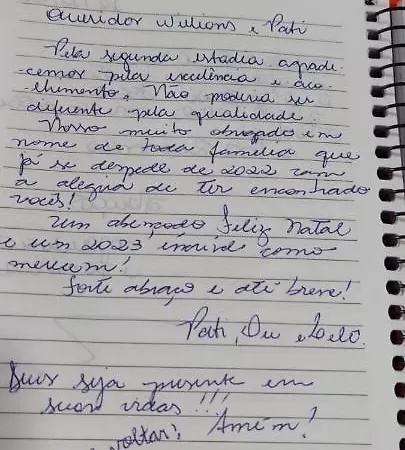 Queridos Wilians e Pati
Pela segunda estadia agrade-
cemos pela excelência e aco-
lhimento. Não poderia ser
diferente pela qualidade.
Nosso muito obrigado em
nome de toda família que
já se despede de 2022 com
a alegria de ter encontrado
vocês!
Um abençoado feliz Natal
e um 2023 incrível como
merecem!
forte abraço e até breve!
Pati, Du e
Deus seja presente em
suas vidas!!!
voltar! Amém!